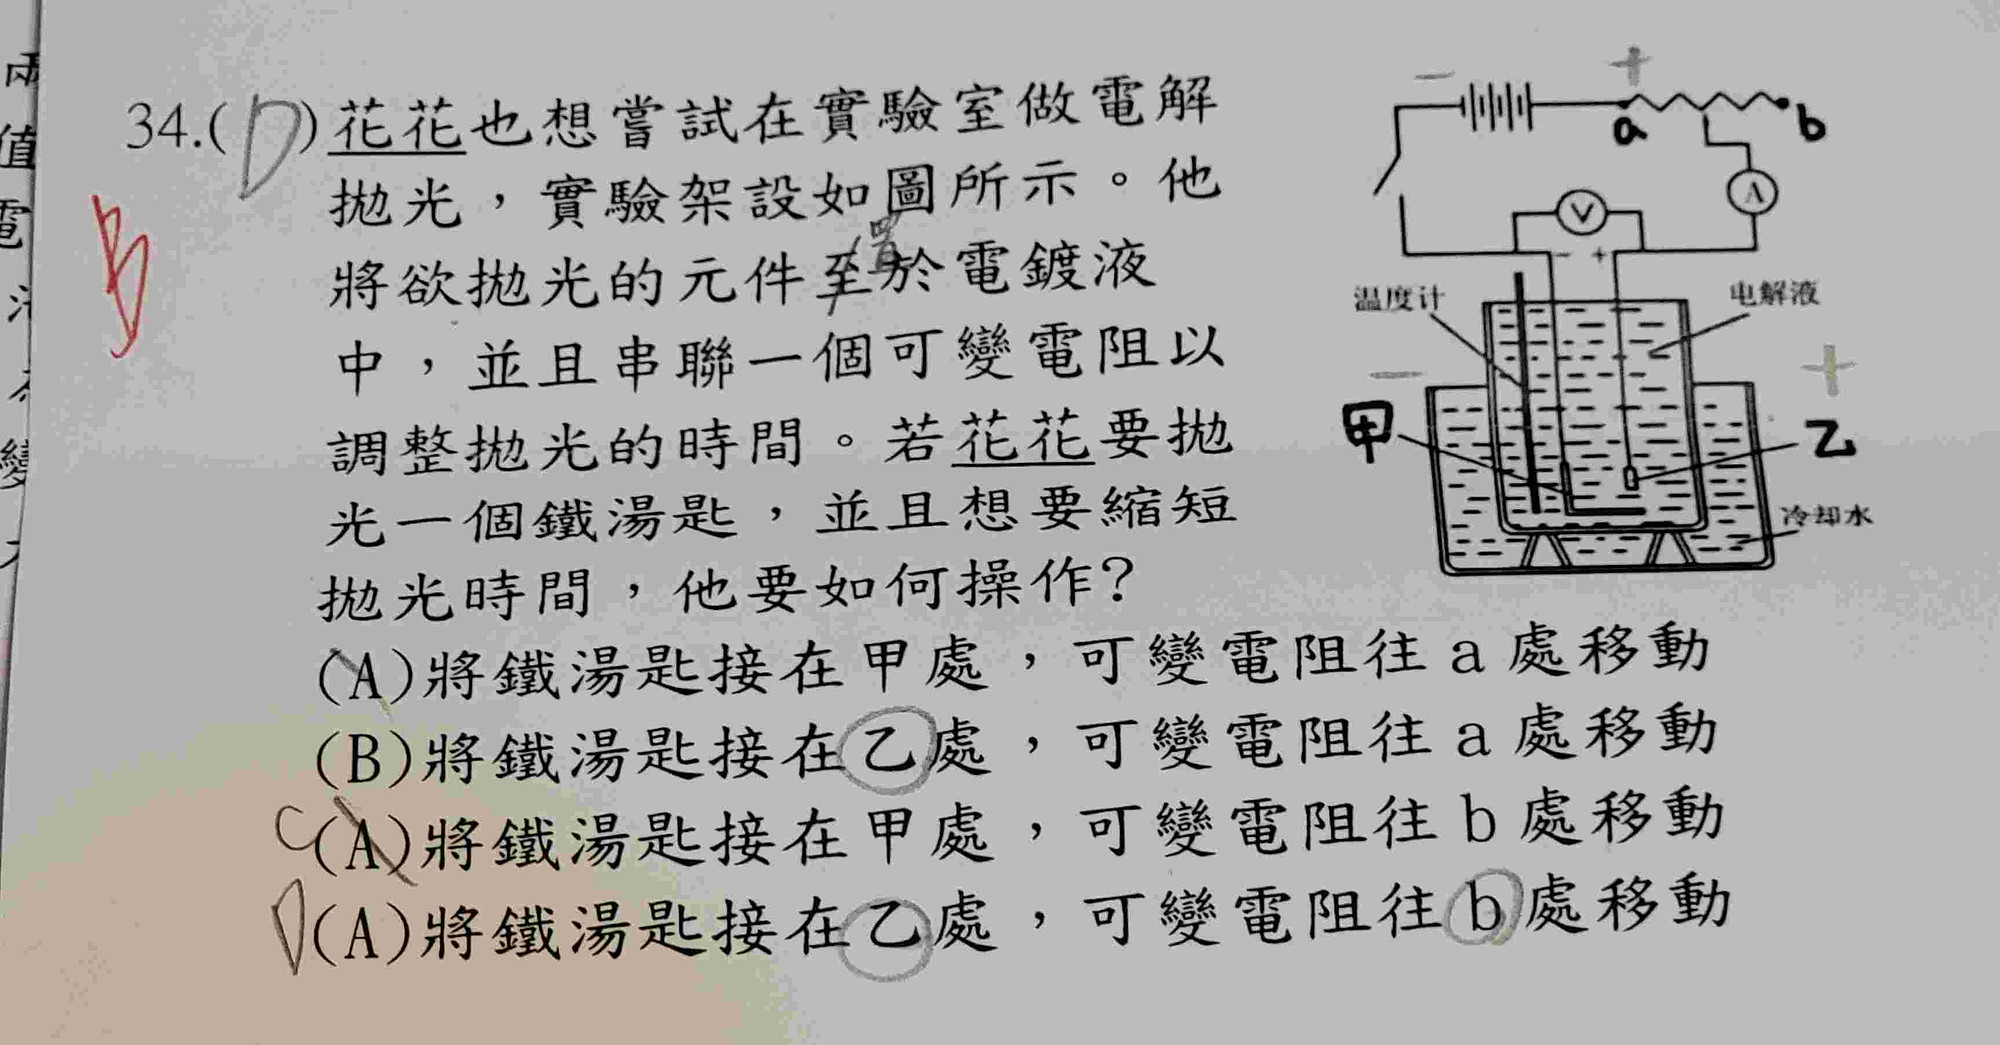 34.(D)花花也想嘗試在實驗室做電解
拋光，實驗架設如圖所示。他
將欲拋光的元件至於電鍍液
置
中，並且串聯一個可變電阻以
調整拋光的時間。若花花要拋
光一個鐵湯匙，並且想要縮短
拋光時間，他要如何操作?
(A)將鐵湯匙接在甲處，可變電阻往a處移動
(B)將鐵湯匙接在乙處，可變電阻往a處移動
C(A)將鐵湯匙接在甲處，可變電阻往b處移動
D(A)將鐵湯匙接在乙處，可變電阻往b處移動
B
− +
a b
A
V
− +
温度计
电解液
− +
甲
乙
冷却水
兩
值
電
變